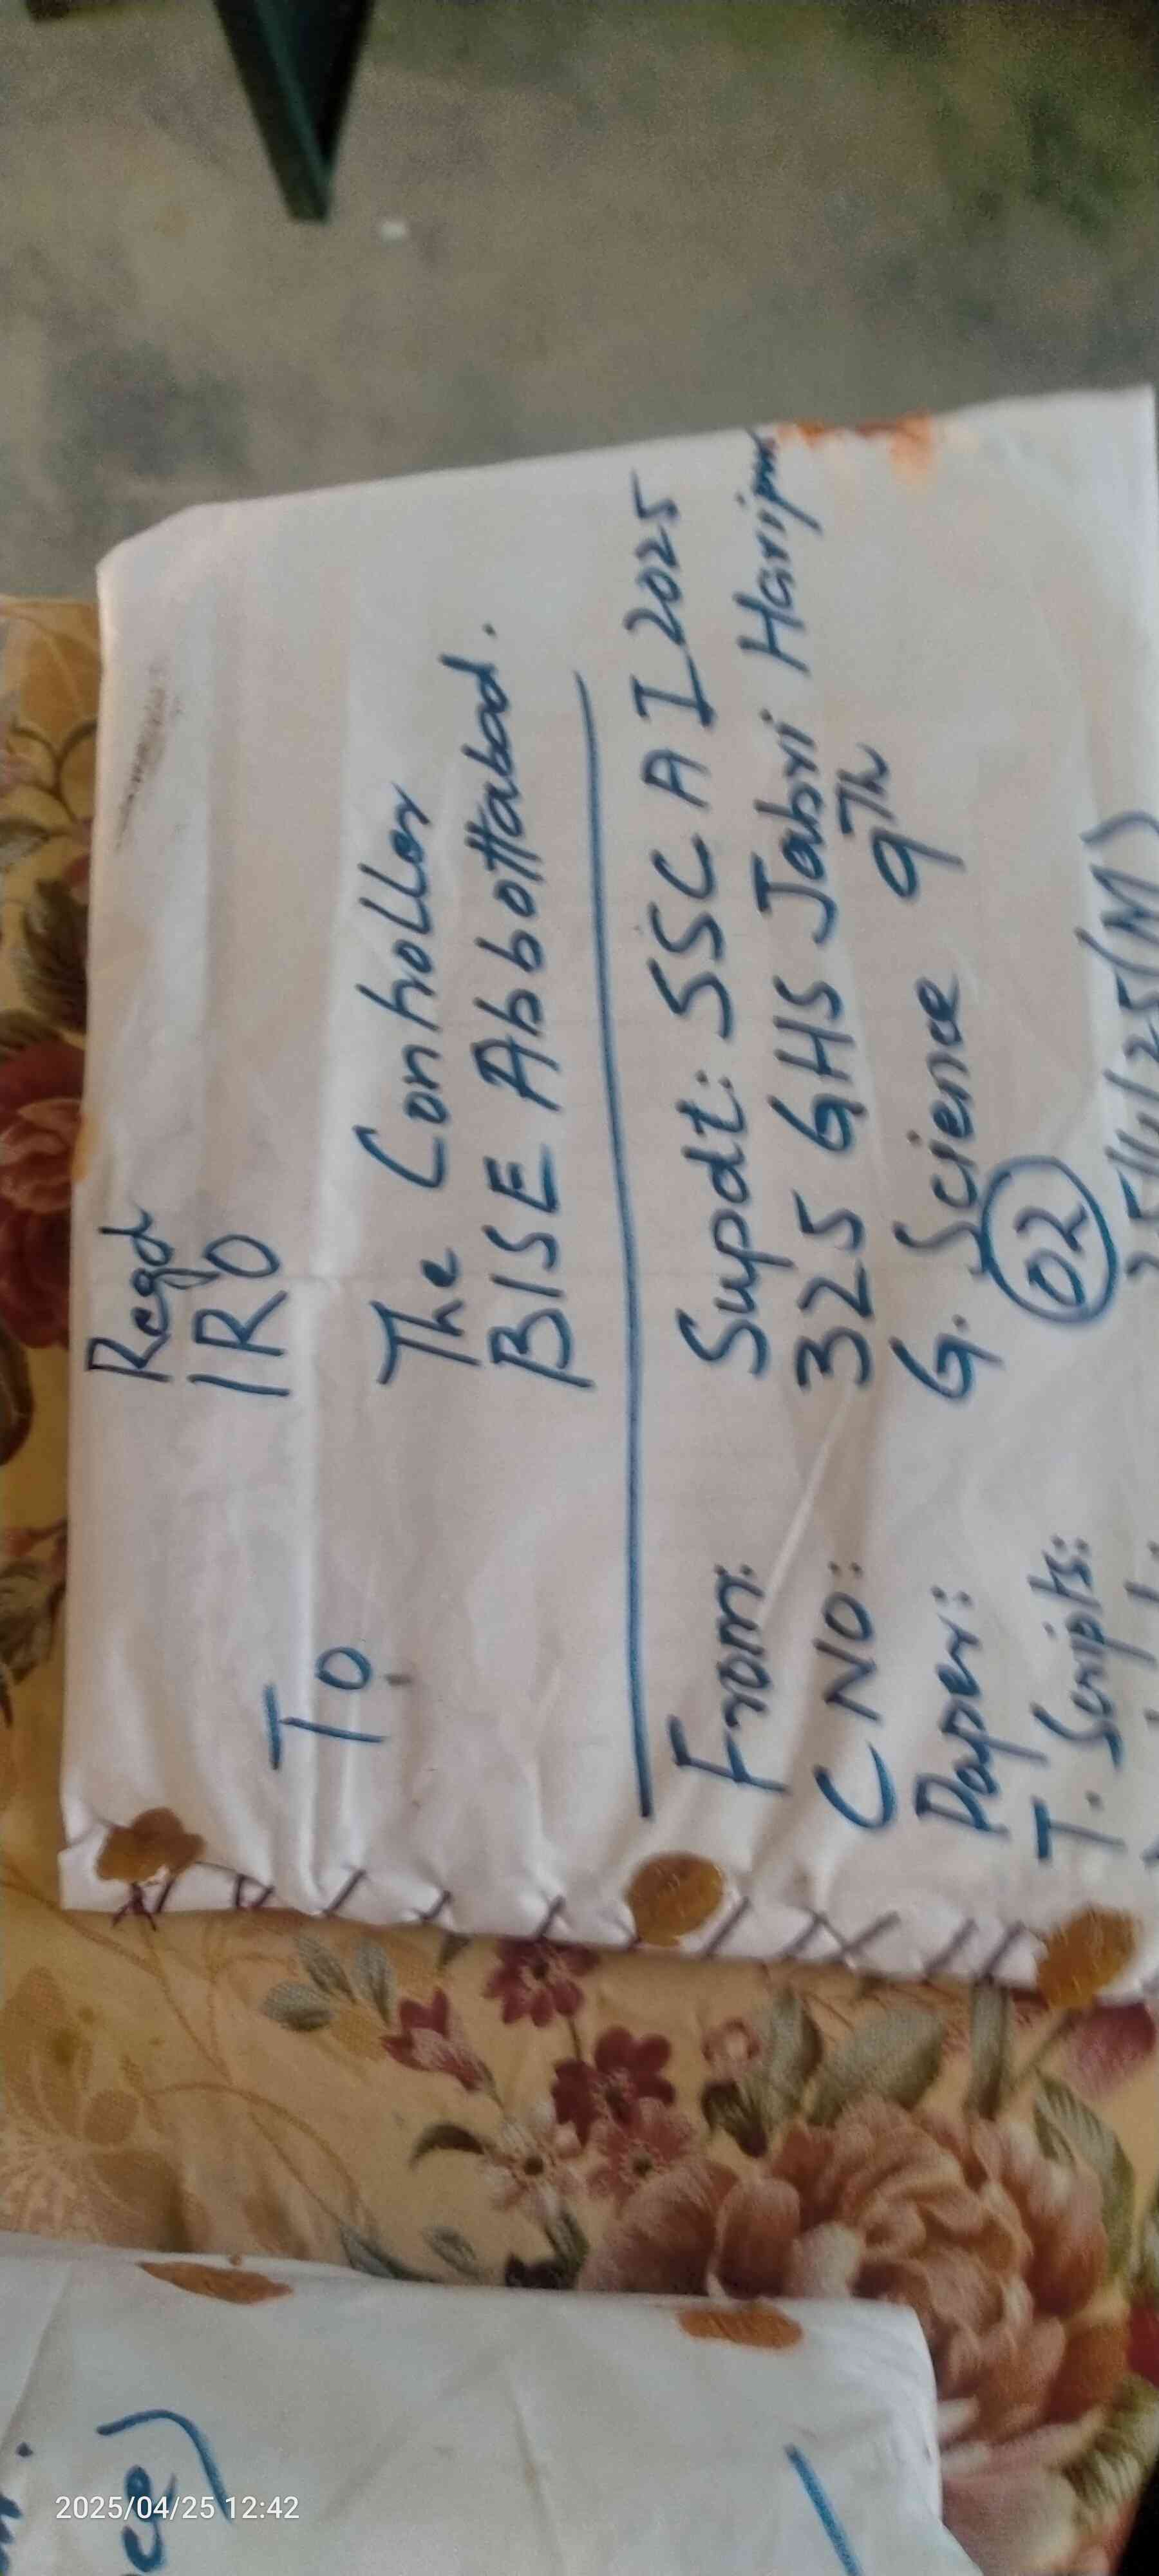 Regd
IRO
To,
The Controller
BISE Abbottabad.
From: Supdt: SSC A I 2025
C No: 325 GHS Jabri Haripur
Paper: G. Science 9Th
T. Scripts: 02
25/4/25(M)
ce)
2025/04/25 12:42